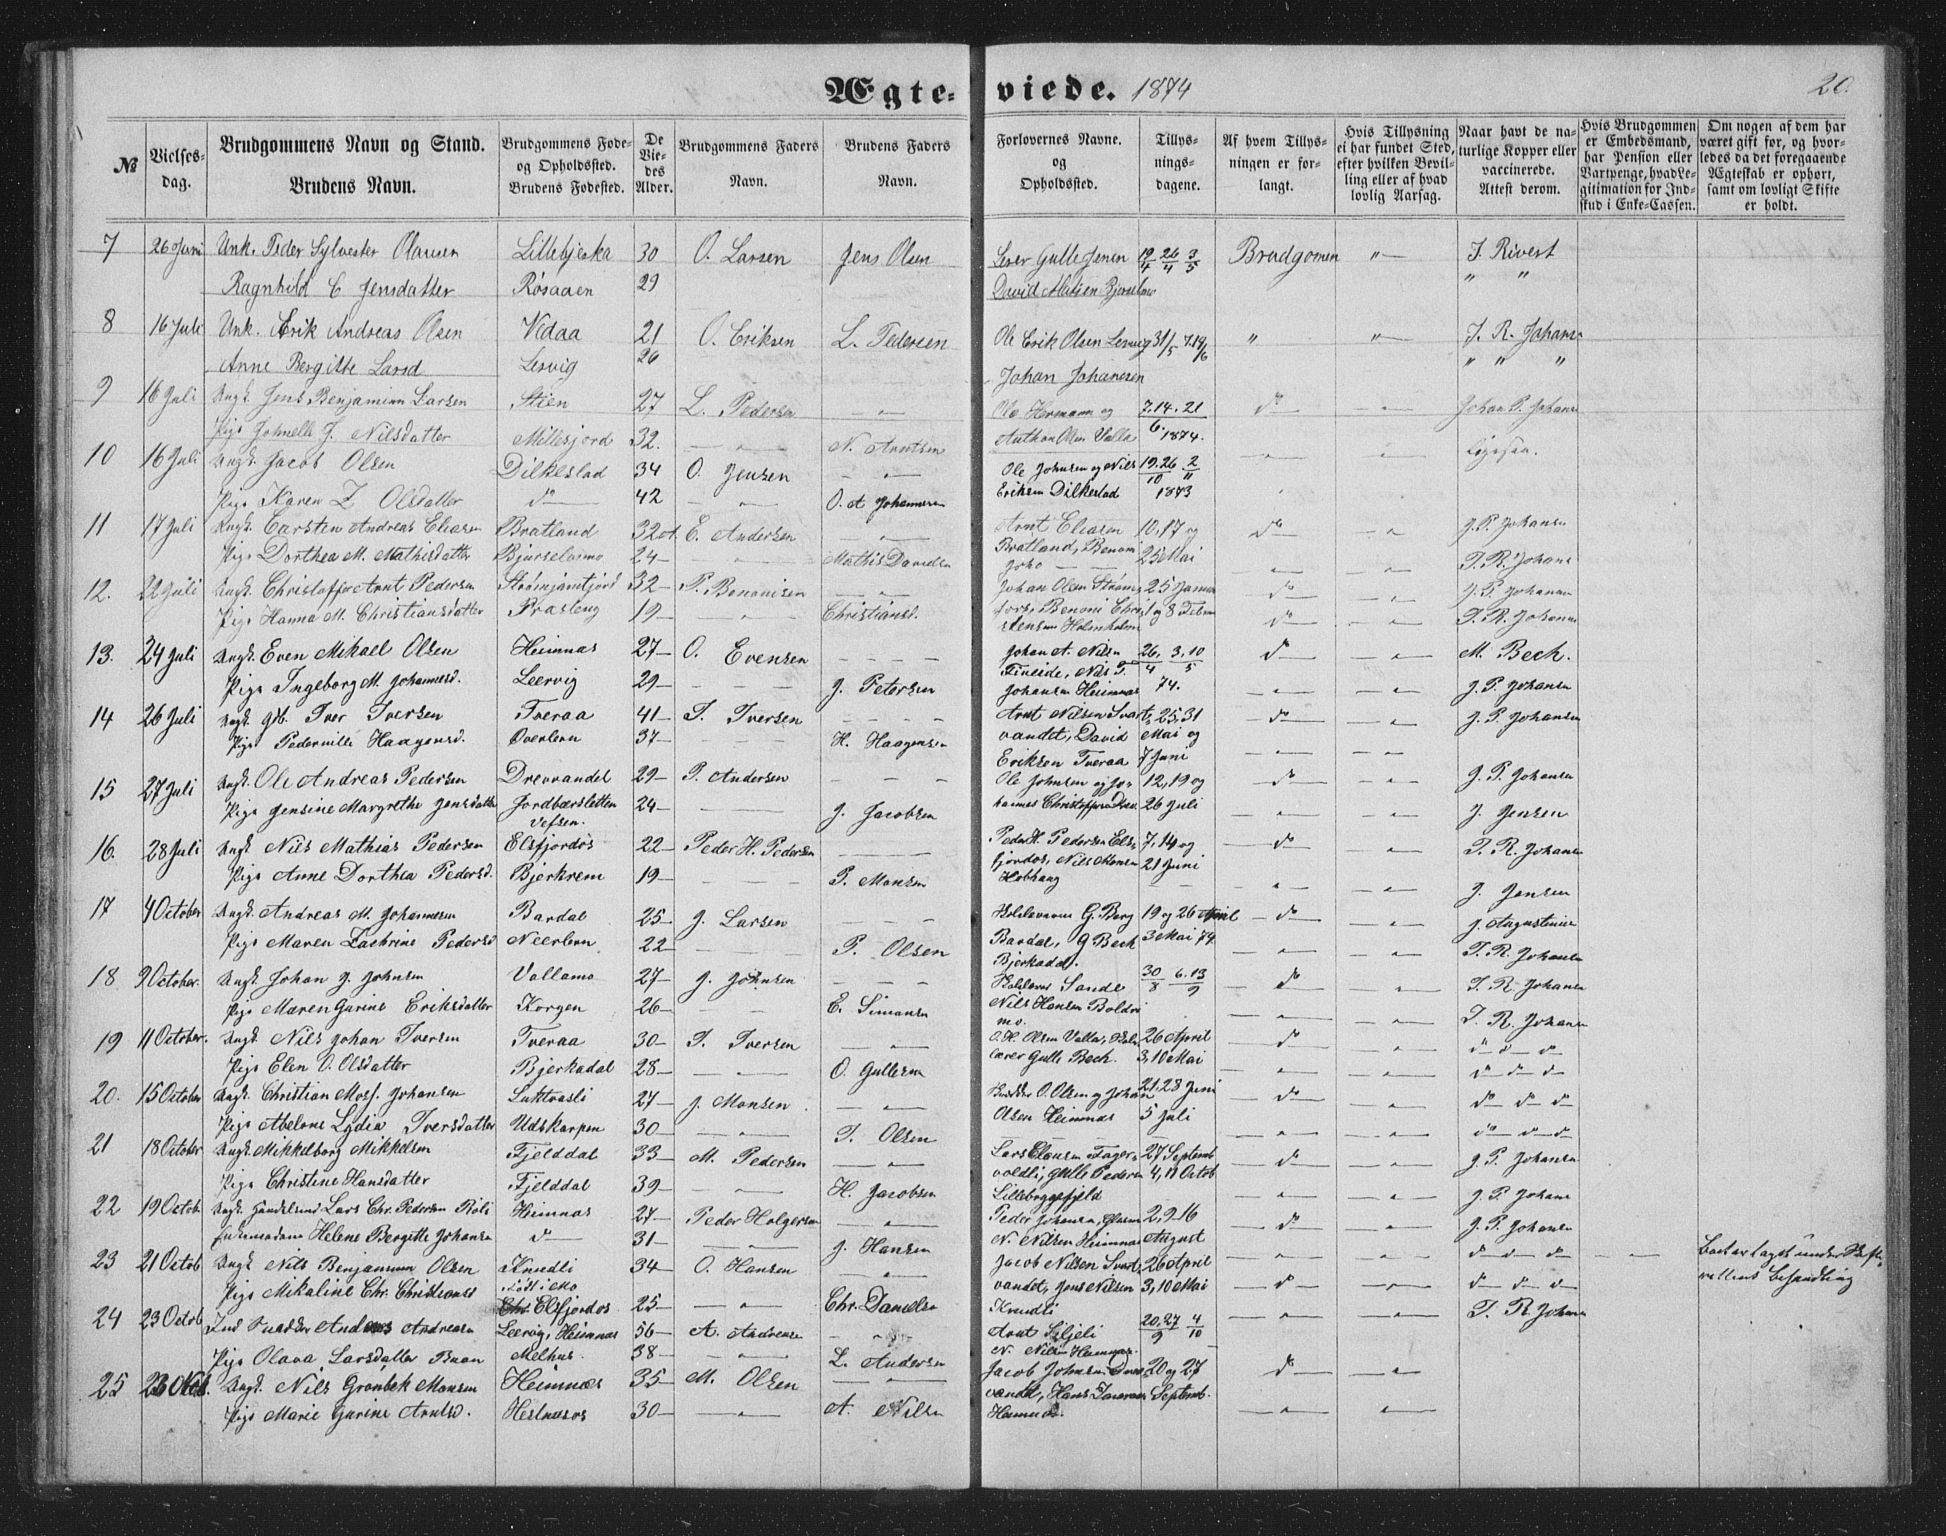 Ægteviede. 1874
20.
№
Vielsesdag.
Brudgommens Navn og Stand.
Brudens Navn.
Brudgommens Føde- og Opholdssted.
Brudens Fødested.
De Viedes Alder.
Brudgommens Faders Navn.
Brudens Faders Navn.
Forlovernes Navne. og Opholdssted.
Tillysningsdagene.
Af hvem Tillysningen er forlangt.
Hvis Tillysning ei har fundet Sted, efter hvilken Bevilling eller af hvad lovlig Aarsag.
Naar havt de naturlige Kopper eller vaccinerede. Attest derom.
Hvis Brudgommen er Embedsmand, har Pension eller Vartpenge, hvad Legitimation for Indskud i Enke-Cassen.
Om nogen af dem har været gift før, og hvorledes da det foregaaende Ægteskab er ophørt, samt om lovligt Skifte er holdt.
7 26 Juni Unk. Peder Sylvester Olausen Lillebjerka 30 O. Larsen Jens Olsen Gulle Jensen 19/4 26/4 3/5 Brudgomen " J. Rivert
Ragnhild C Jensdatter Røsaaen 29 David Matsen " "
8 16 Juli Unk. Erik Andreas Olsen Vedaa 21 O. Eriksen L. Pedersen Ole Erik Olsen Lervig 31/5 7.14/6 " " J. R. Johans
Anne Bergitte Larsd Lervig 26 Johan Johanesen " " "
9 16 Juli Ungk. Jens Benjaminn Larsen Stien 27 L. Pedersen — Ole Hermann og 7. 14. 21 do — Johan P. Johans
Pige Johnelle J. Nilsdatter Millesjord 32. — N. Arntsen Anthon Olsen Valla 6. 1874.
10 16 Juli Ungk. Jacob Olsen Dilkestad 34 O. Jensen — Ole Johnsen og Nils 19.26/10 2/11 Ligesaa.
Pige Karen Z Olsdatter do 42 — O. A Johannesen Eriksen Dilkestad 1873
11 17 Juli Ungk. Carsten Andreas Eliasen Bratland 32 E. Andersen — Arnt Eliasen 10, 17 og do — J. P. Johansen
Pige Dorthea M. Mathisdatter Bjurselvmo 24 — Mathis Davidsen Bratland, Benom 25 Mai — P. R. Johans
12. 22 Juli Ungk. Christoffer Arnt Pedersen 32 P. Benonisen — Johan Olsen 25 Januar do — J. P. Johansen
Pige Hanna M. Christiansdatter Præsteng 19 — Christiansd. fors, Benoni Chri 1 og 8 Febru do — P. R. Johansen
stensen Holmholm
13. 24 Juli Ungk. Even Mikael Olsen Heimnæs 27 O. Evensen — Johan A. Nilsen 26/4 3, 10/5 do — M. Bech.
Pige Ingeborg M. Johannesd. Leervig 29 — J. Petersen Nils P. 74. — J. P. Johansen
Johansen Heimnæs
14 26 Juli Ungk. gb. Iver Iversen Tveraa 41 I. Iversen — Arnt Nilsen Svart- 25, 31 do — J. P. Johansen
Pige Pedernille Haagensd. Overleren 37 — H. Haagensen vandet, David Mai og
Eriksen Tveraa 7 Juni
15 27 Juli Ungk. Ole Andreas Pedersen Drevvandet 29 P. Andersen — Ole Johnsen og Jo- 12, 19 og do — J. P. Johansen
Pige Jensine Margrethe Jensdatter Jordbærsletten 24 — J. Jacobsen hannes Christoffersen Drev. 26 Juli — J. Jensen
Vefsen.
16. 28 Juli Ungk. Nils Mathias Pedersen Elsfjordos 22 Peder H. Pedersen — Peder H. Pedersen Els- 7, 14 og do — P. R. Johansen
Pige Anne Dorthea Pedersd. Bjerkrem 19 — P. Monsen fjordos, Nils Monsen 21 Juni — J. Jensen
17 4 October Ungk. Andreas M. Johannesen Bardal 25 J. Larsen — G. Berg 19 og 26 April do — J. Augustinius
Pige Maren Pedersd Neerleren 22 — P. Olsen Bardal, G Bech 3 Mai 74. — P. R. Johansen
Bjerkadal.
18 9 October. Ungk. Johan J. Johnsen Vallamo 27 J. Johnsen — Sande 30/8 6. 13/9 do — P. R. Johansen
Pige Maren Gurine Eriksdatter Korgen 26 — E. Simonsen Nils Hansen — P. R. Johansen
mo.
19 11 October. Ungk. Nils Johan Iversen Tveraa 30 I. Iversen — O. H. Olsen Valla, 26 April do — do do do
Pige Elen O. Olsdatter Bjerkadal 28 — O. Gullesen Gulle Bech. 3, 10 Mai — do do do
20. 15 October Ungk. Christian Johansen Luktvasli 27 J. Monsen — O. Olsen og Johan 21, 28 Juni do — do do do
Pige Abelone Lydia Iversdatter Udskarpen 30 — I. Olsen Olsen Heimnæs 5 Juli — do do do
21 18 October Ungk. Mikkelborg Mikkelsen Fjelddal 33 M. Pedersen — Lars Clausen Fager- 27 Septemb do — J. P. Johansen
Pige Christine Hansdatter Fjelddal 39 — H. Jacobsen voldli, Gulle Pedersen 4, 11 Octob — J. P. Johans
22 19 Octob. Ungk. Handelsmd Lars Chr. Pedersen Røli Heimnæs 27 Peder Holgersen — Peder Johansen, 2, 9 16 do — J. P. Johansen
Enkemadame Helene Bergitte Johansen do 31 — J. Hansen N. Nilsen Heimnæs August
23 21 Octob Ungk Nils Benjaminn Olsen Knudli 34 O. Hansen — Jacob Nilsen Svart- 26 April do do do —
Pige Mikaline Chr. Christiansd Elsfjordos 25 — Chr. Danielsen vandet, Jens Nilsen 3, 10 Mai — do do do
Knudli
24 23 Octob Anders Andreasen Leervig, Heimnæs 56 A. Andreasen — Arnt Siljeli 20, 27/9 4/10 — P. R. Johansen
Pige Olava Larsdatter Buan Melhus. 38 — L. Andersen N. Nilsen Heimnæs.
25 23 Ungk. Nils Grønbek Monsen Heimnæs 35 M. Olsen — Jacob Johnsen 20 og 27 do —
Pige Marie Gurine Arntsd. Hestnesos 30 — A. Nilsen vandet, Hans Septemb.
under Skifterettens behandling